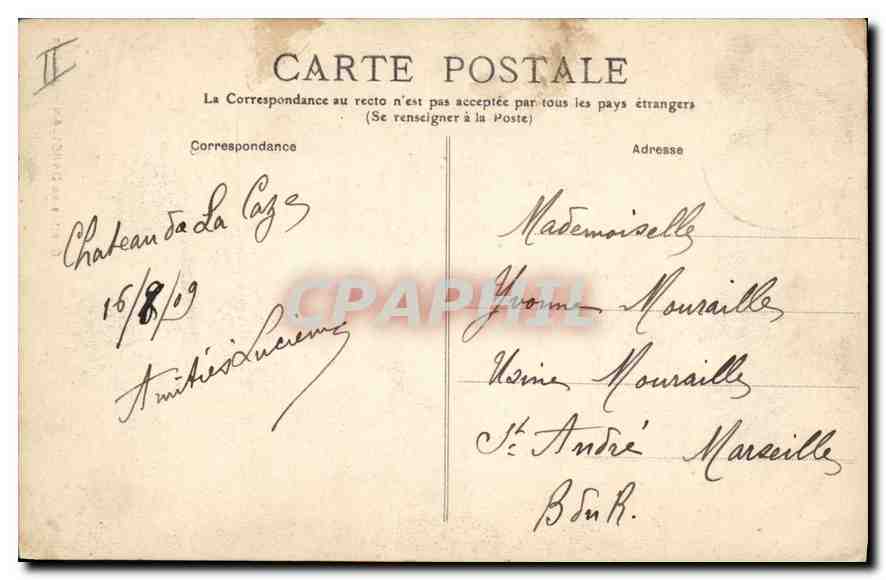 II
CARTE POSTALE
La Correspondance au recto n'est pas acceptée par tous les pays étrangers
(Se renseigner à la Poste)
Correspondance
Chateau de La Caze
16/8/09
Amitiés Lucienne
Adresse
Mademoiselle
Yvonne Mouraille
Usine Mouraille
St. André Marseille
B du R.
CPAPHIL